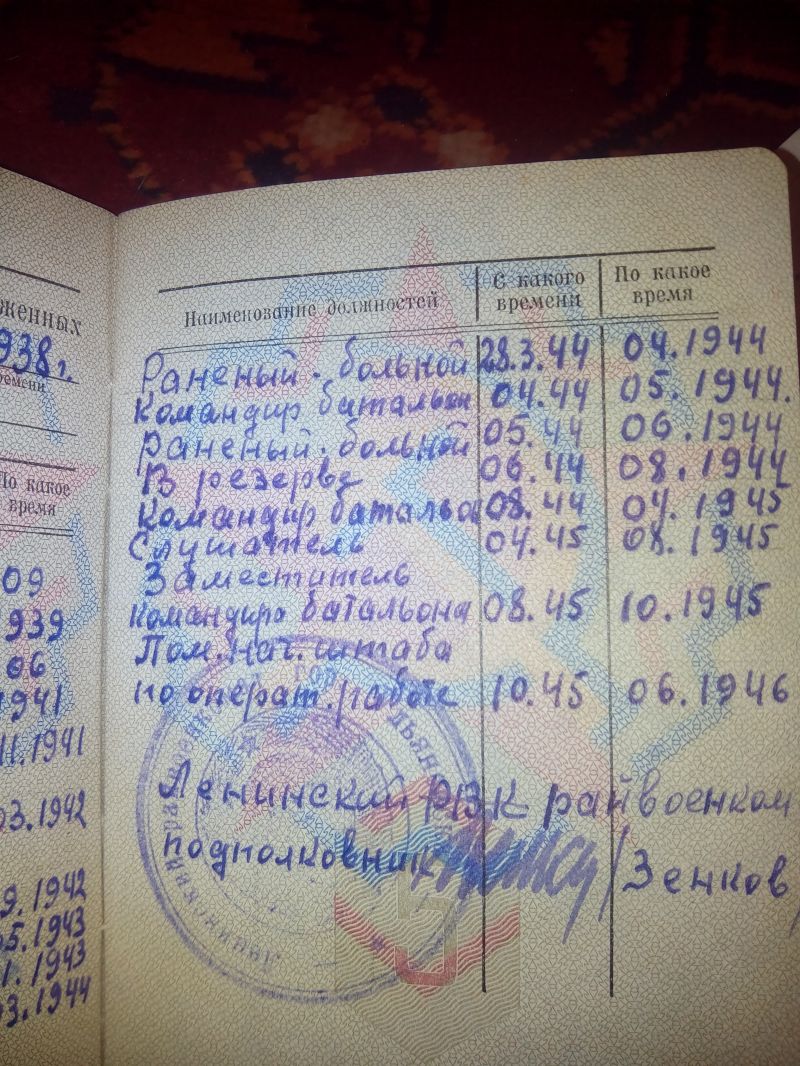 женных
938 г.
По какое
время
09
939
06
1941
11.1941
03.1942
9.1942
05.1943
1.1943
03.1944
Наименование должностей
С какого
времени
По какое
время
Раненый. больной 28.3.44 04.1944
Командир батальон 04.44 05.1944.
Раненый. больной 05.44 06.1944
В резерве 06.44 08.1944
Командир батальо 08.44 04.1945
Слушатель 04.45 08.1945
Заместитель
командира батальона 08.45 10.1945
Пом. нач. штаба
по операт. работе 10.45 06.1946
Ленинский РВК райвоенком
подполковник / Зенков /
5